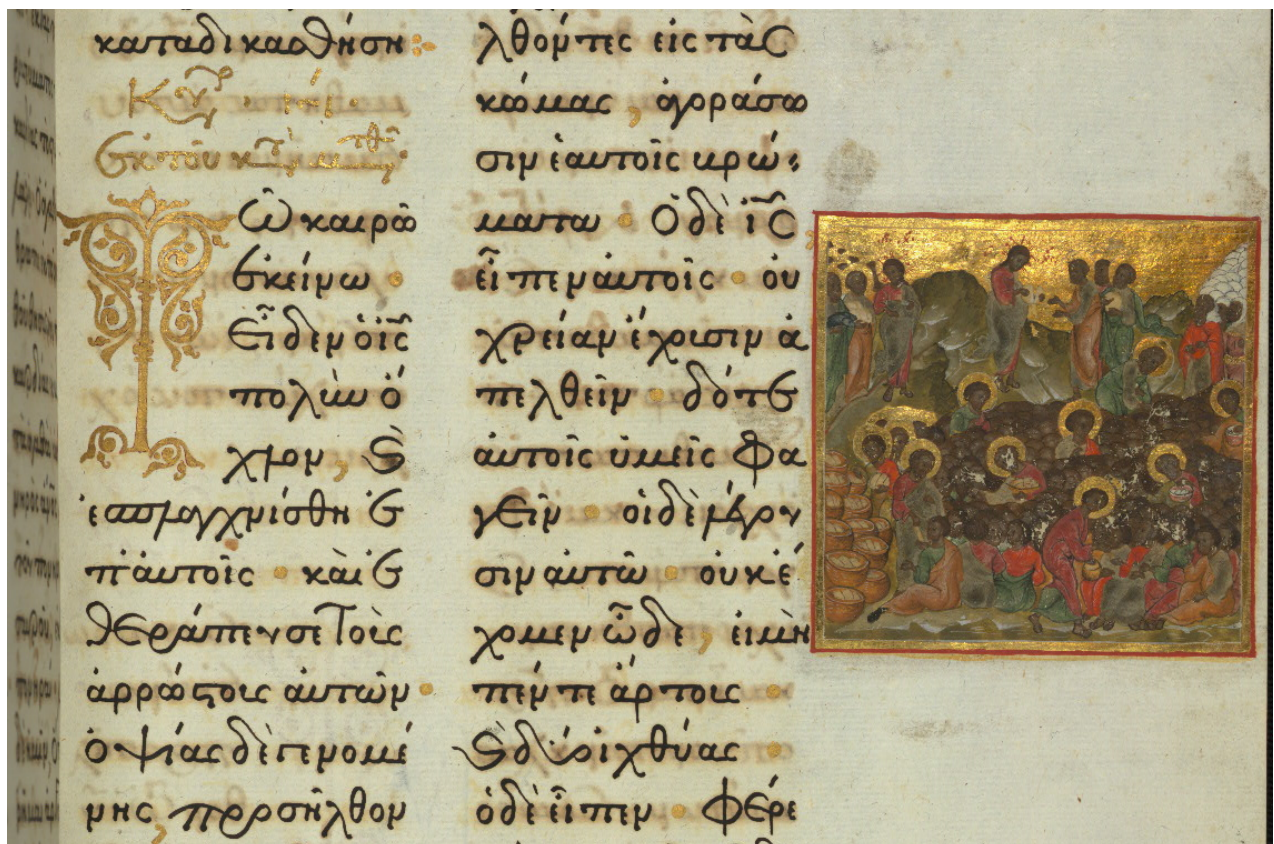 καταδικασθήση
Κυ
Ἐκ τοῦ κατὰ ματθ
Τῶ καιρῶ
ἐκείνω ·
Εἶδεν ὁ ις
πολὺν ὄ
χλον, κ
ἐσπλαγχνίσθη ἐ
π' αὐτοῖς · καὶ ἐ
θεράπευσε τοὺς
ἀρρώστους αὐτῶν ·
ὀψίας δὲ γενομέ
νης, προσῆλθον
λθόντες εἰς τὰς
κώμας, ἀγοράσω
σιν ἑαυτοῖς βρώ
ματα · Ὁ δὲ ις
εἶπεν αὐτοῖς · οὐ
χρείαν ἔχουσιν ἀ
πελθεῖν · δότε
αὐτοῖς ὑμεῖς φα
γεῖν · οἱ δὲ λέγου
σιν αὐτῶ · οὐκ ἔ
χομεν ὧδε, εἰ μὴ
πέντε ἄρτους ·
κ δύο ἰχθύας ·
ὁ δὲ εἶπεν · φέρε